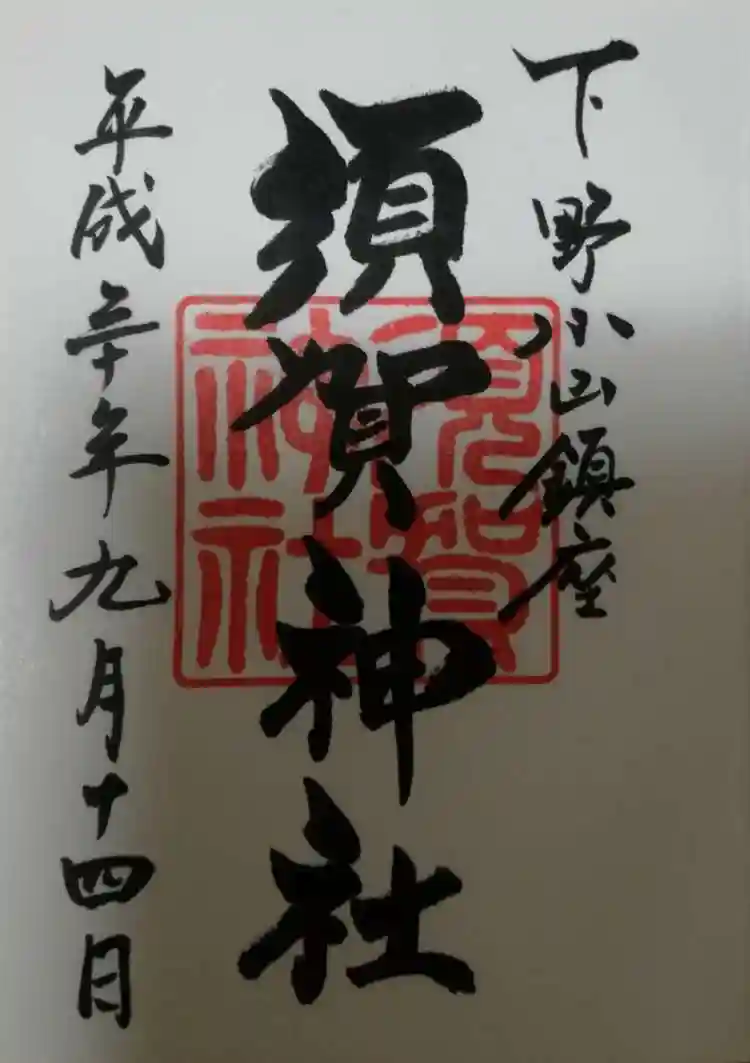 下野小山鎮座
須賀神社
平成三十年九月十四日
須賀神社